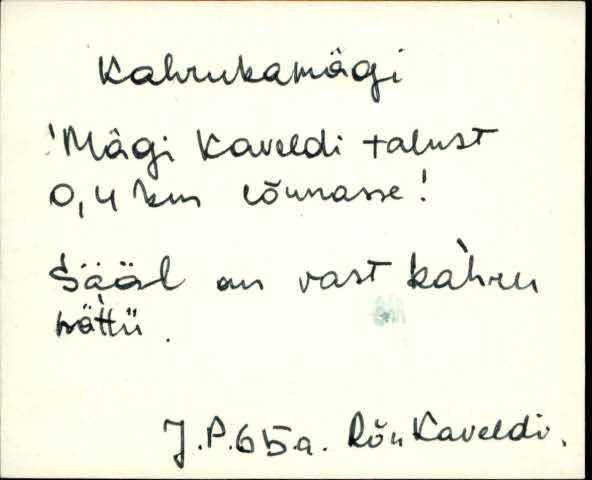 Kahrukamägi
'Mägi Kaveldi talust
0,4 km lõunasse!
Sääl on vast kàhru
J.P. 65.a. Rõu Kaveldi.